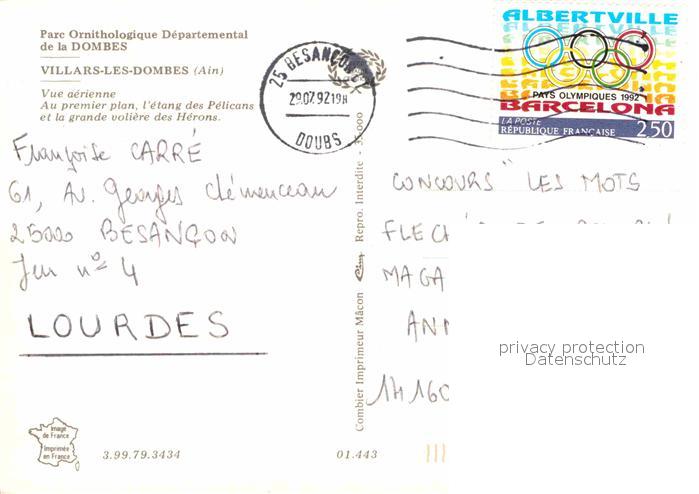 Parc Ornithologique Départemental
de la DOMBES
VILLARS-LES-DOMBES (Ain)
Vue aérienne
Au premier plan, l'étang des Pélicans
et la grande volière des Hérons.
25 BESANCON
29.07.92 19H
DOUBS
ALBERTVILLE
PAYS OLYMPIQUES 1992
BARCELONA
LA POSTE
RÉPUBLIQUE FRANÇAISE 2,50
Françoise CARRÉ
61, Av. Georges Clémenceau
25000 BESANÇON
Jeu n° 4
LOURDES
CONCOURS " LES MOTS
FLECH
MAGA
ANN
14160
privacy protection
Datenschutz
Combier Imprimeur Mâcon Cim Repro. Interdite - 35.000
Image
de France
Imprimée
en France
3.99.79.3434
01.443